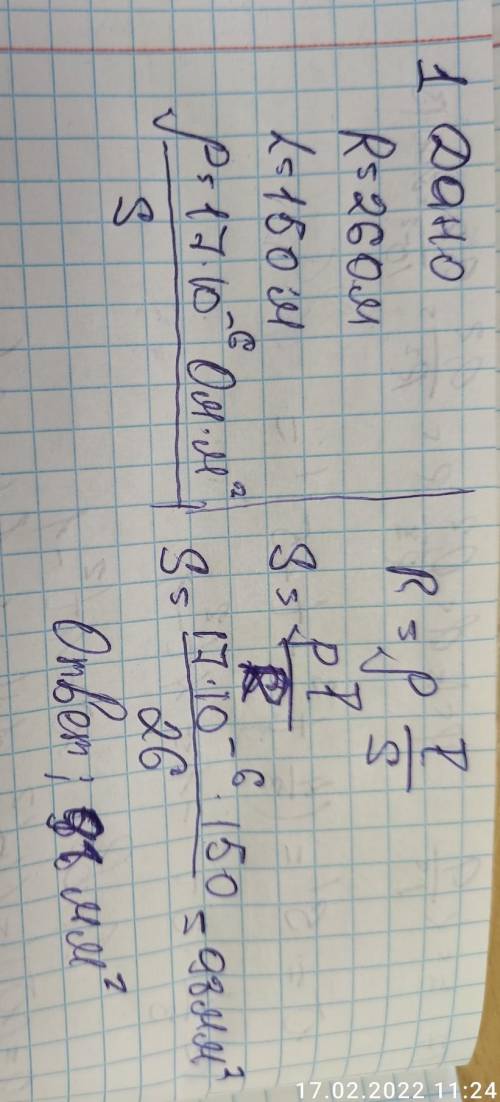 1 Дано
R = 26 Ом
L = 150 м
ρ = 17·10⁻⁶ Ом·м²
S
R = ρ l/S
S = ρ l/R
S = 17·10⁻⁶·150 / 26 = 98 мм²
Ответ: 98 мм²
17.02.2022 11:24